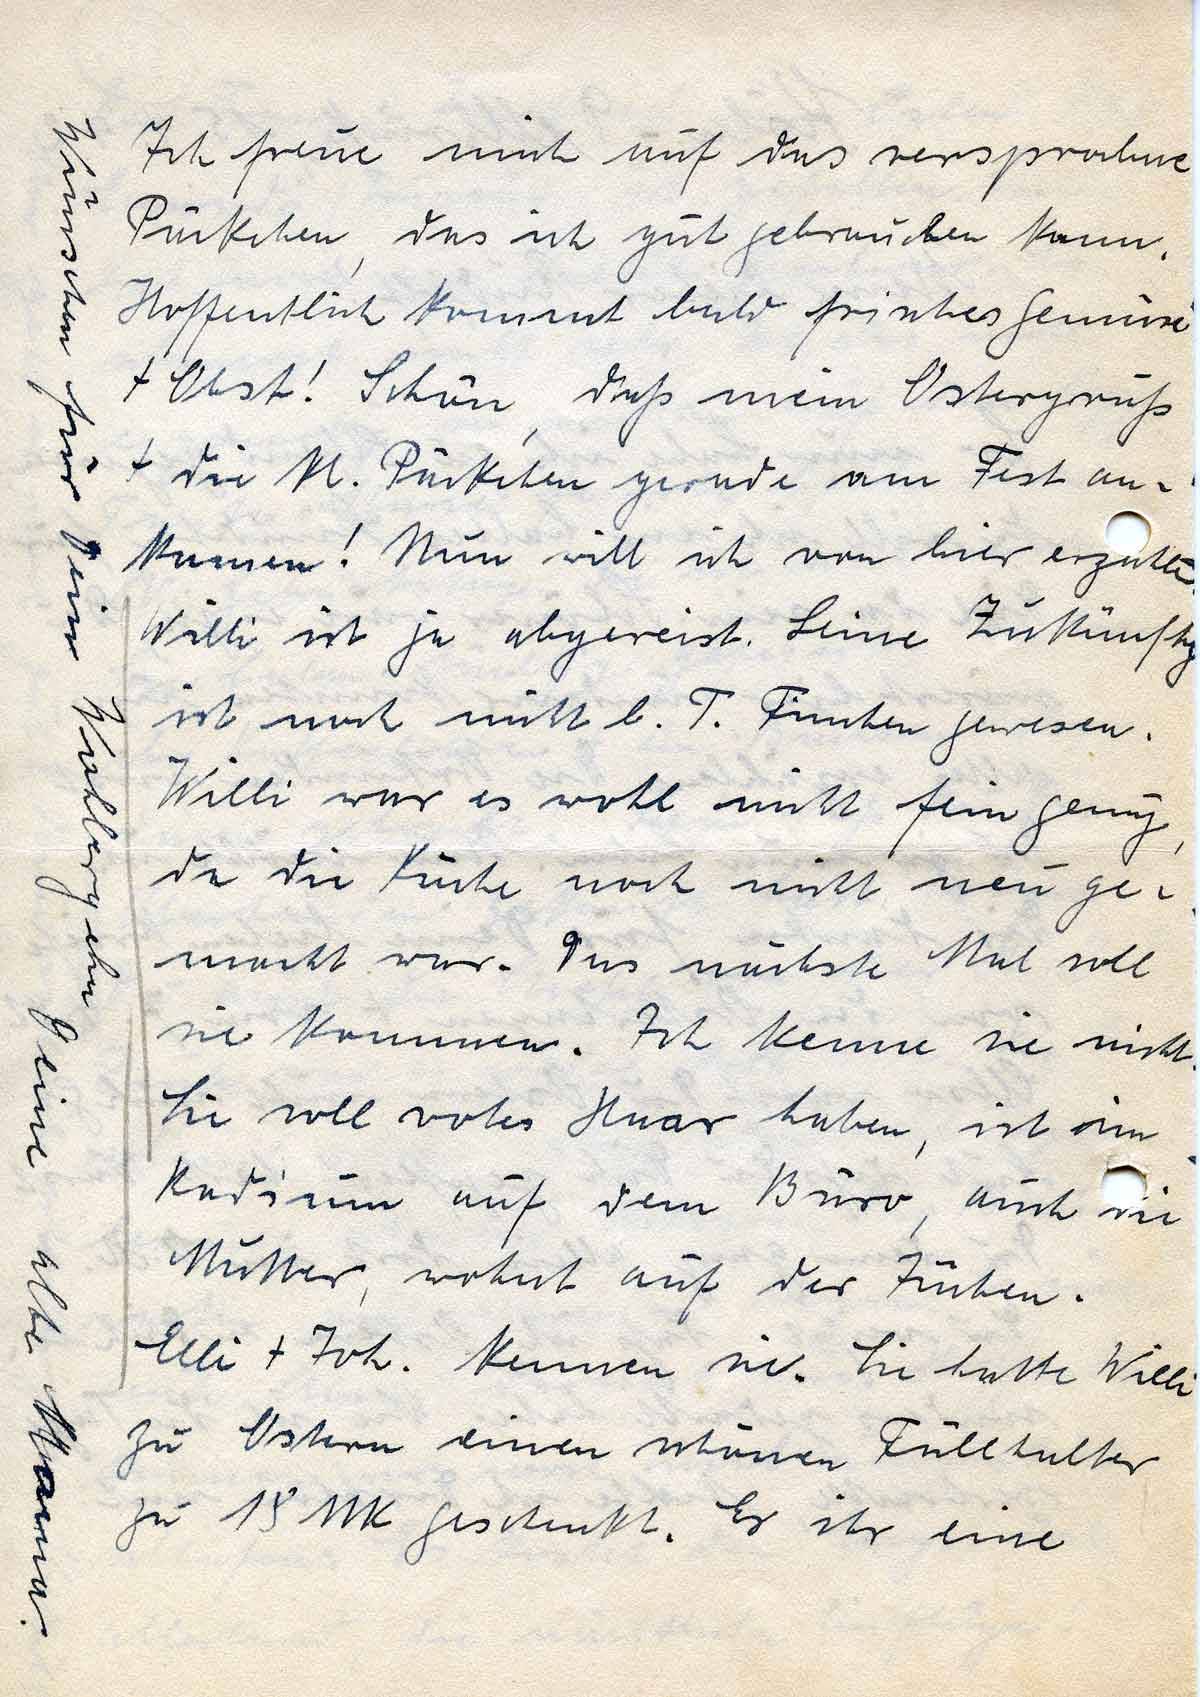 Ich freue mich auf das versprochne
Päckchen, das ich gut gebrauchen kann.
Hoffentlich kommt bald frisches Gemüse
+ Obst! Schön, daß mein Ostergruß
+ die kl. Päckchen gerade am Fest an-
kamen! Nun will ich von hier erzähle.
Willi ist ja abgereist. Seine Zukünftg
ist noch nicht b. T. Finchen gewesen.
Willi war es wohl nicht fein genug,
da die Küche noch nicht neu ge-
macht war. Das nächste Mal soll
sie kommen. Ich kenne sie nicht.
Sie soll rotes Haar haben, ist im
Radium auf dem Büro, auch die
Mutter, wohnt auf der
Elli + Joh. kennen sie. Sie hatte Willi
zu Ostern einen schönen Füllhalter
zu 18 MK geschenkt. Er ihr eine
Wünschen für Dein Wohlergehn Deine alte Mama.